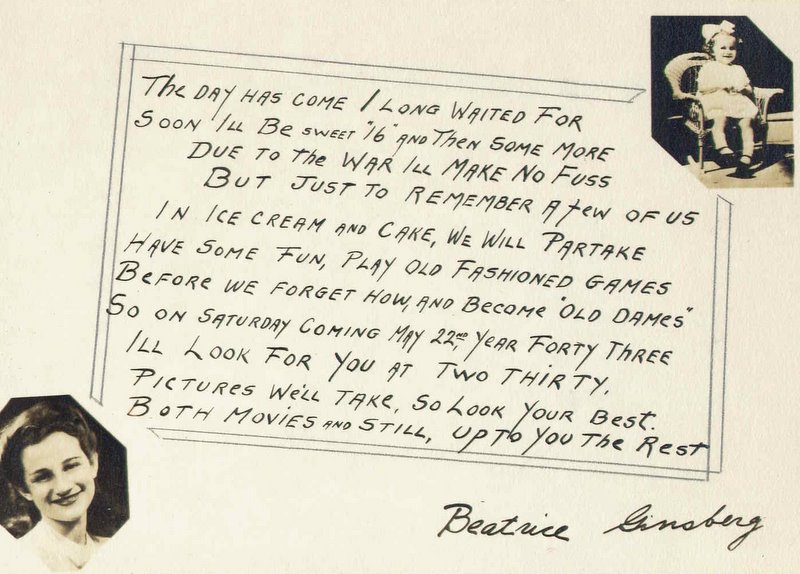 The DAY HAS COME I LONG WAITED FOR
SOON ILL BE SWEET "16" AND THEN SOME MORE
DUE TO the WAR ILL MAKE NO FUSS
BUT JUST TO REMEMBER A few OF US
IN ICE CREAM AND CAKE, WE WILL PARTAKE
HAVE SOME FUN, PLAY OLD FASHIONED GAMES
BEFORE WE FORGET HOW, AND BECOME "OLD DAMES"
SO ON SATURDAY COMING MAY 22ND, YEAR FORTY THREE
ILL LOOK FOR YOU AT TWO THIRTY.
PICTURES WE'LL TAKE, SO LOOK YOUR BEST.
BOTH MOVIES AND STILL, UP TO YOU THE REST
Beatrice Ginsberg